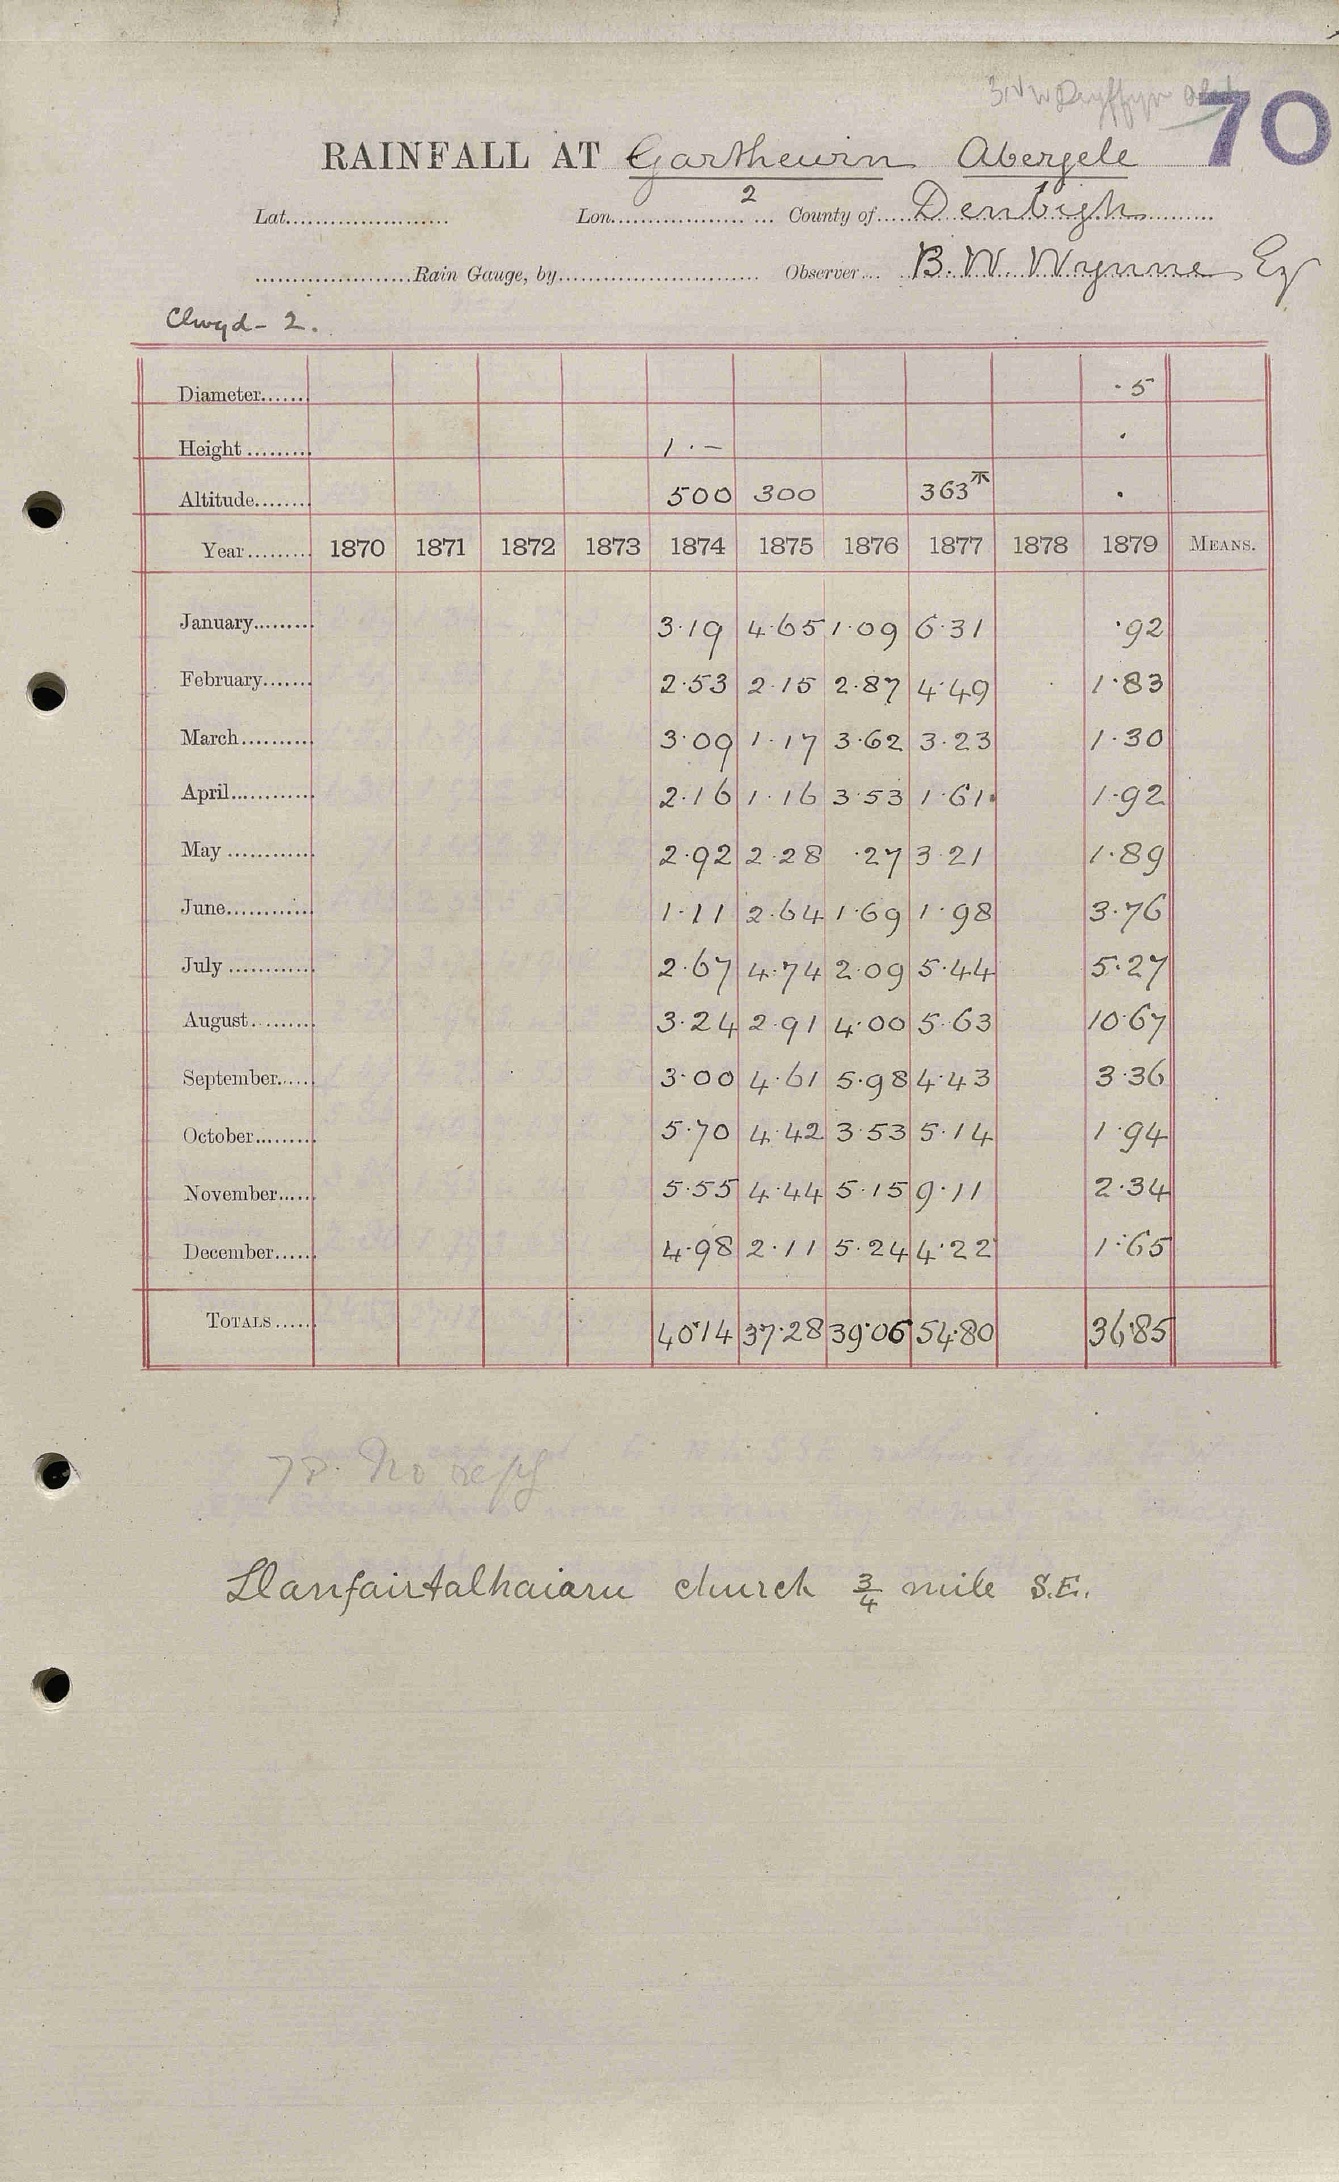 70
RAINFALL AT Garthewin Abergele
Lat. Lon. 2 County of Denbigh
Rain Gauge, by Observer B. W. Wynne Esq
Clwyd - 2.
Diameter ·5
Height 1·– ·
Altitude 500 300 363 ·
Year 1870 1871 1872 1873 1874 1875 1876 1877 1878 1879 MEANS.
January 3·19 4·65 1·09 6·31 ·92
February 2·53 2·15 2·87 4·49 1·83
March 3·09 1·17 3·62 3·23 1·30
April 2·16 1·16 3·53 1·61 1·92
May 2·92 2·28 ·27 3·21 1·89
June 1·11 2·64 1·69 1·98 3·76
July 2·67 4·74 2·09 5·44 5·27
August 3·24 2·91 4·00 5·63 10·67
September 3·00 4·61 5·98 4·43 3·36
October 5·70 4·42 3·53 5·14 1·94
November 5·55 4·44 5·15 9·11 2·34
December 4·98 2·11 5·24 4·22 1·65
TOTALS 40·14 37·28 39·06 54·80 36·85
78. No reply
Llanfairtalhaiarn church 3/4 mile S.E.